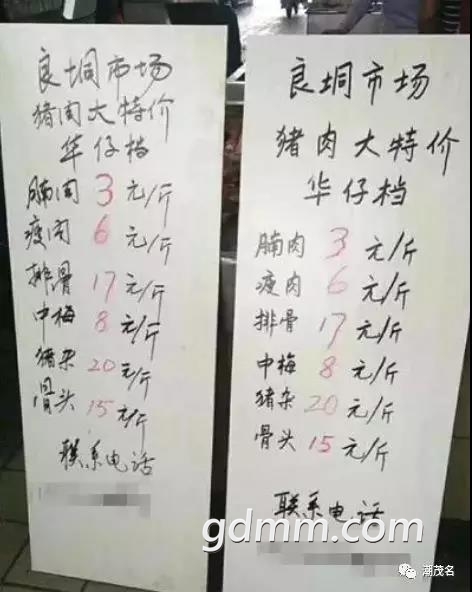 良垌市场
猪肉大特价
华仔档
腩肉 3 元/斤
瘦肉 6 元/斤
排骨 17 元/斤
中梅 8 元/斤
猪杂 20 元/斤
骨头 15 元/斤
联系电话
良垌市场
猪肉大特价
华仔档
腩肉 3 元/斤
瘦肉 6 元/斤
排骨 17 元/斤
中梅 8 元/斤
猪杂 20 元/斤
骨头 15 元/斤
联系电话
gdmm.com
潮茂名